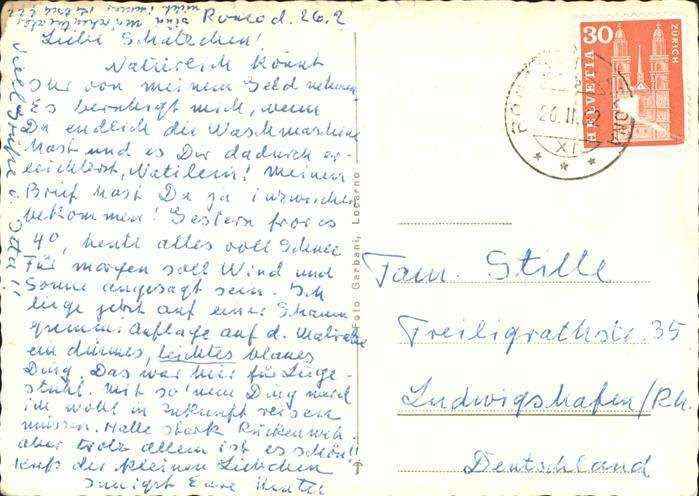 Ronco d. 26.2
Liebe Schätzchen!
Natürlich könnt
Ihr von meinem Geld nehmen.
Es beruhigt mich, wenn
Du endlich die Waschmaschine
hast und es Dir dadurch er-
leichterst, Matilein! Meinen
Brief hast Du ja inzwischen
bekommen! Gestern fror es
4°, heute alles voll Schnee
Für morgen soll Wind und
Sonne angesagt sein. Ich
liege jetzt auf einer Schaum
gummi Auflage auf d. Matratze
ein dünnes, leichtes blaues
Ding. Das war hier für Liege-
stuhl. Mit so'nem Ding werd
ich wohl in Zukunft reisen
müssen. Hatte stark Rückenweh.
aber trotz allem ist es schön!!
Kuß der kleinen Liebchen
Innigst Eure Mutti
Viele Grüße v.
Foto Garbani, Locarno
HELVETIA
30
ZÜRICH
26.II.62
XI
Fam. Stille
Freiligrathstr. 35
Ludwigshafen/Rh.
Deutschland